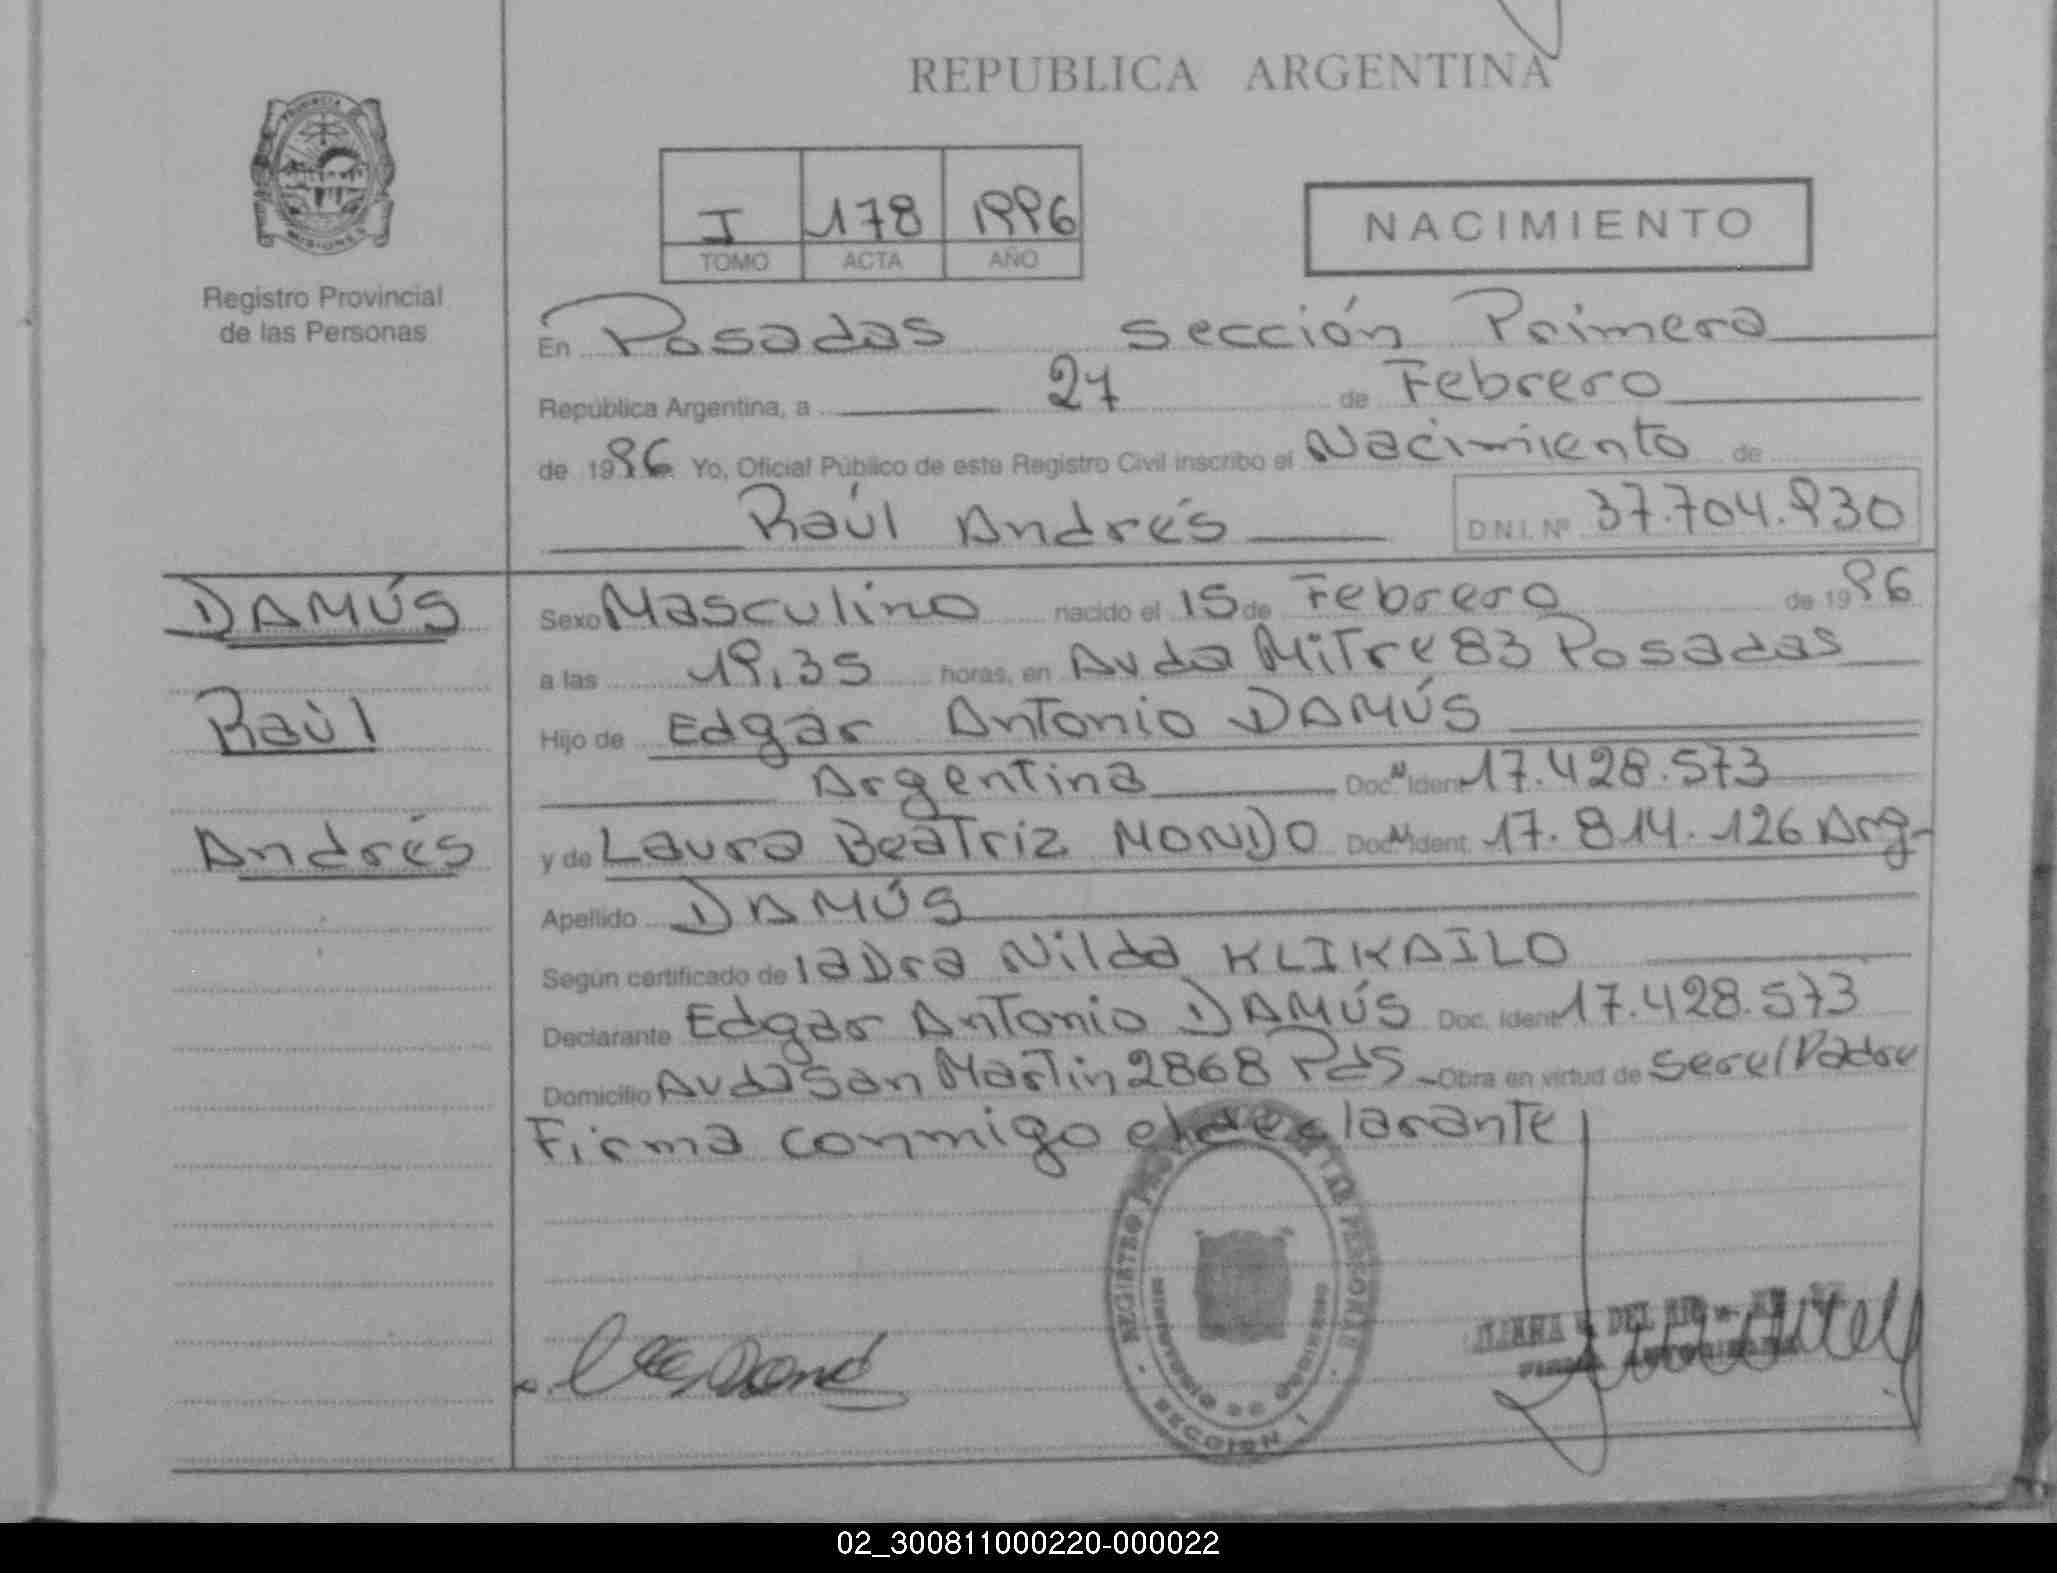 REPUBLICA ARGENTINA
PROVINCIA
MISIONES
Registro Provincial
de las Personas
I 178 1996
TOMO ACTA AÑO
NACIMIENTO
En Posadas sección Primera
República Argentina, a 27 de Febrero
de 1996 Yo, Oficial Público de este Registro Civil inscribo el Nacimiento de
Raúl Andrés D.N.I. Nº 37.704.930
DAMÚS
Raúl
Andrés
Sexo Masculino nacido el 15 de Febrero de 1996
a las 19,35 horas, en Avda Mitre 83 Posadas
Hijo de Edgar Antonio DAMÚS
Argentina Doc. N Ident. 17.428.573
y de Laura Beatriz MONDO Doc. N Ident. 17.814.126 Arg-
Apellido DAMÚS
Según certificado de la Dra Nilda KLIKAILO
Declarante Edgar Antonio DAMÚS Doc. Ident. 17.428.573
Domicilio Avda San Martin 2868 Pdas Obra en virtud de ser el Padre
Firma conmigo el declarante
REGISTRO PROVINCIAL DE LAS PERSONAS
SECCION 1
02_300811000220-000022